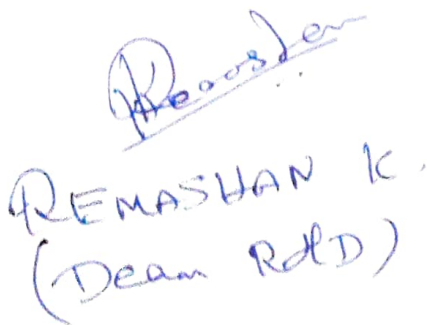 REMASHAN K.
(Dean R&D)